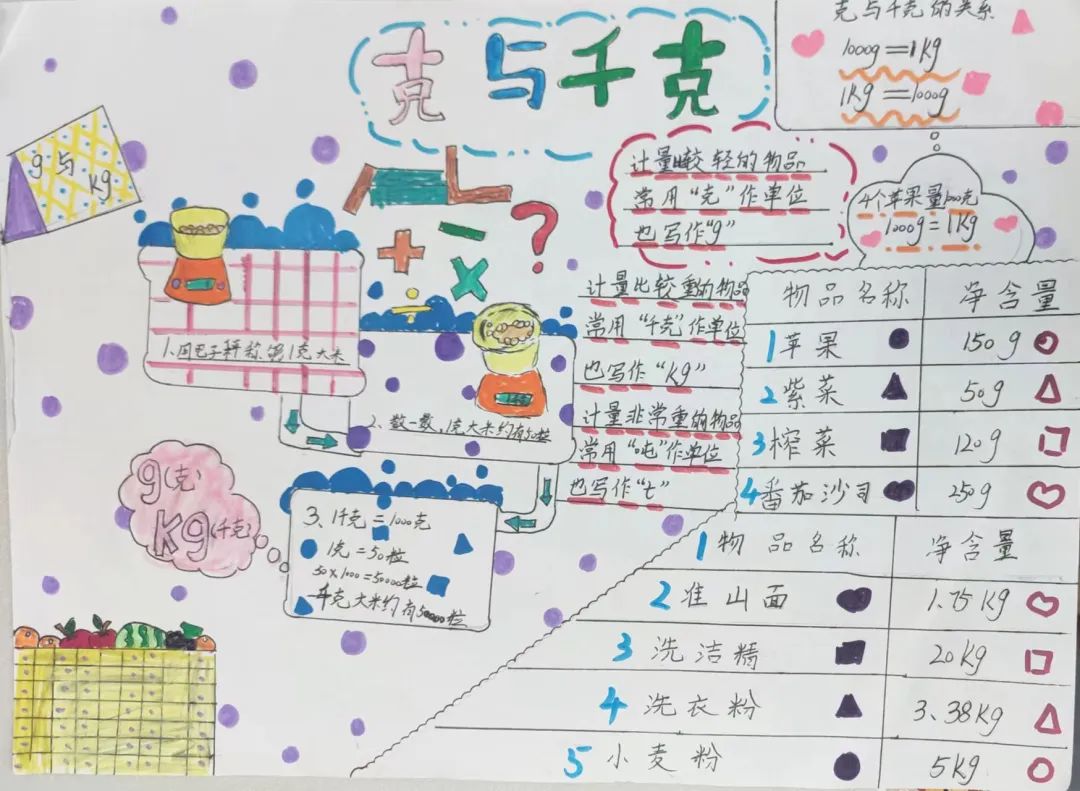 克与千克
克与千克的关系
1000g=1Kg
1Kg=1000g
g与kg
计量比较轻的物品
常用“克”作单位
也写作“g”
4个苹果量1000克
1000g=1Kg
计量比较重的物品
常用“千克”作单位
也写作“Kg”
计量非常重的物品
常用“吨”作单位
也写作“t”
1、用电子秤称够1克大米
2、数一数，1克大米约有50粒
g(克)
Kg(千克)
3、1千克=1000克
1克=50粒
50×1000=50000粒
千克大米约有50000粒
物品名称 净含量
1 苹果 150g
2 紫菜 50g
3 榨菜 120g
4 番茄沙司 250g
1 物品名称 净含量
2 淮山面 1.75Kg
3 洗洁精 20Kg
4 洗衣粉 3.38Kg
5 小麦粉 5Kg